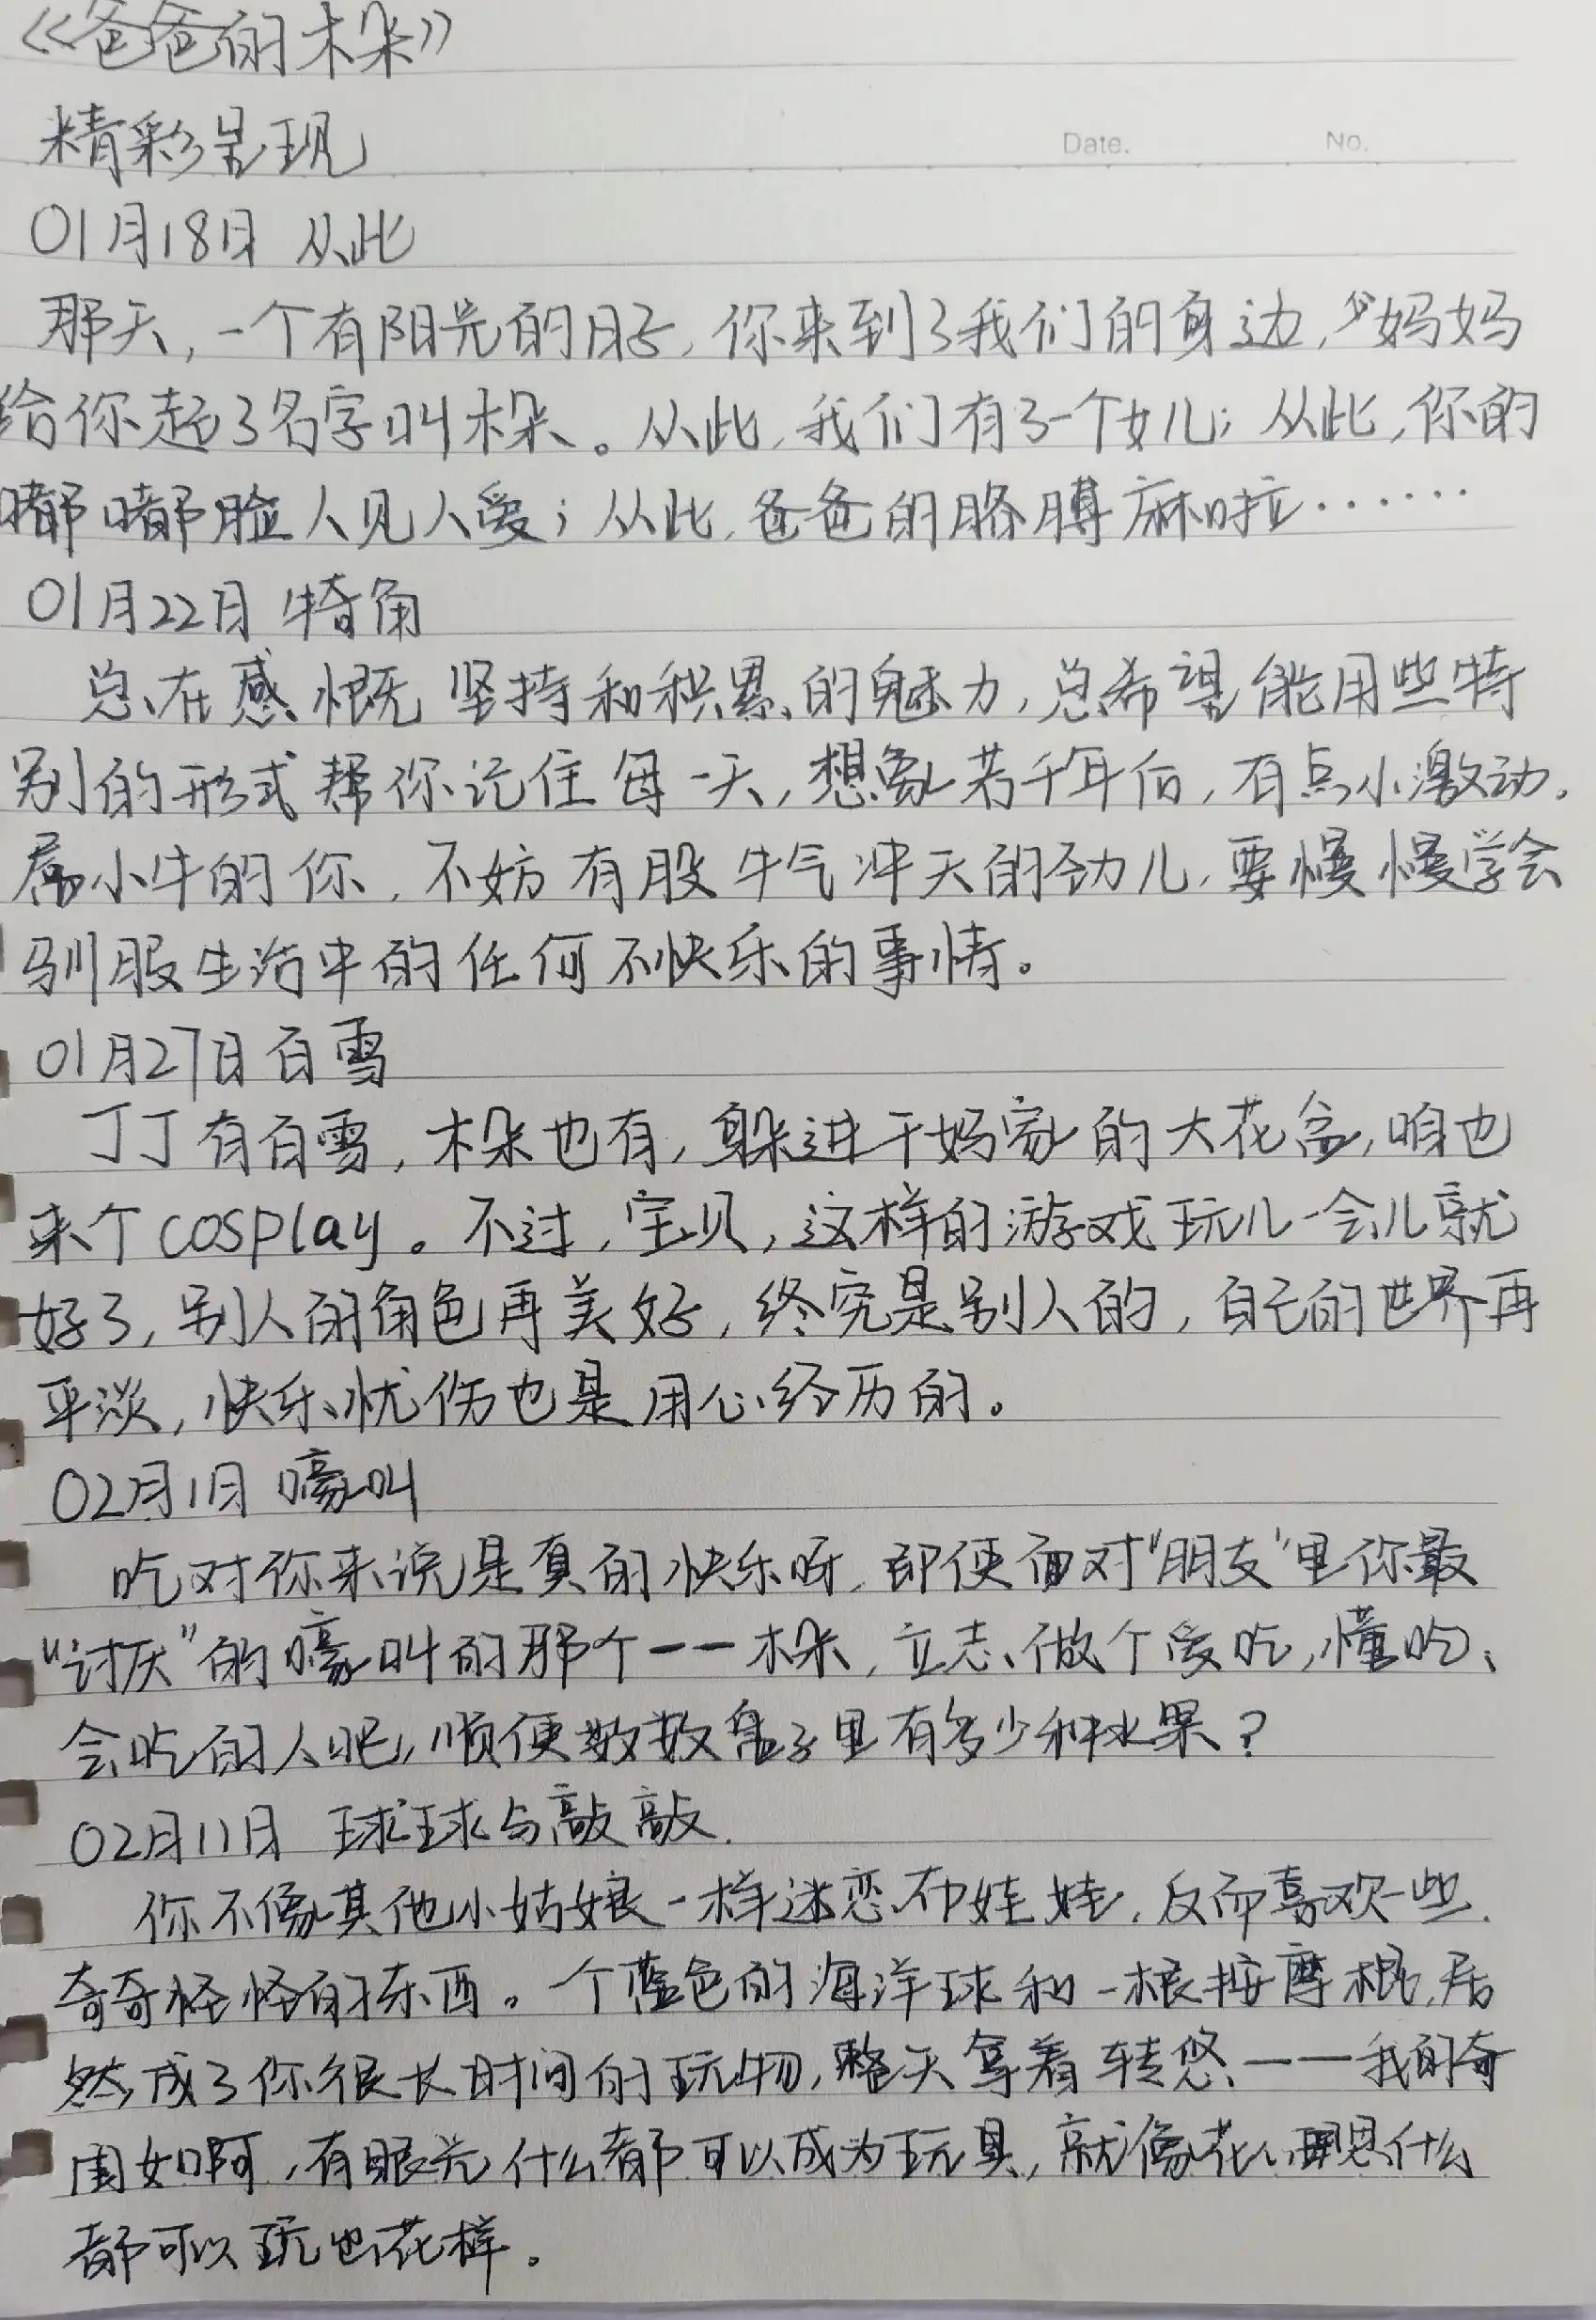 《爸爸的木朵》
精彩呈现
Date.
No.
01月18日 从此
那天,一个有阳光的日子,你来到了我们的身边,妈妈
给你起了名字叫木朵。从此,我们有了一个女儿;从此,你的
嘟嘟脸人见人爱;从此,爸爸的胳膊麻啦……
01月22日 犄角
总在感慨坚持和积累的魅力,总希望能用些特
别的形式帮你记住每一天,想象若干年后,有点小激动。
属小牛的你,不妨有股牛气冲天的劲儿,要慢慢学会
驯服生活中的任何不快乐的事情。
01月27日 白雪
丁丁有白雪,木朵也有,躲进干妈家的大花盆,咱也
来个cosplay。不过,宝贝,这样的游戏玩儿一会儿就
好了,别人的角色再美好,终究是别人的,自己的世界再
平淡,快乐、忧伤也是用心经历的。
02月1日 嚎叫
吃对你来说是真的快乐呀,即便面对“朋友”里你最
“讨厌”的嚎叫的那个——木朵,立志做个爱吃,懂吃、
会吃的人吧,顺便数数盘子里有多少种水果?
02月11日 球球与敲敲.
你不像其他小姑娘一样迷恋布娃娃,反而喜欢一些.
奇奇怪怪的东西。一个蓝色的海洋球和一根按摩棍,居
然成了你很长时间的玩物,整天拿着转悠——我的奇
囡如啊,有眼光什么都可以成为玩具,就像花心思什么
都可以玩出花样。